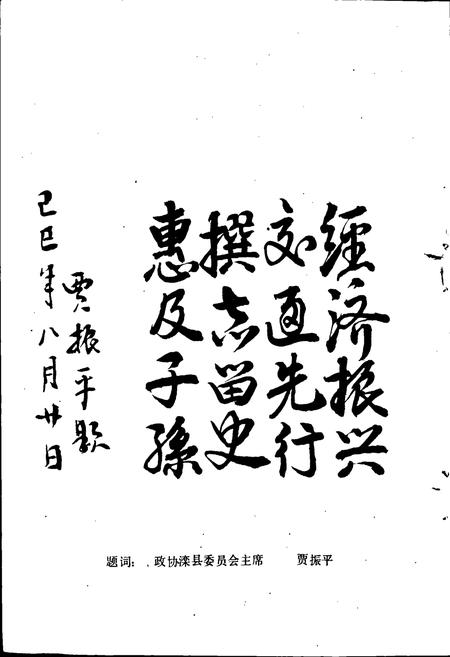 經济振兴
交通先行
撰志留史
惠及子孫
贾振平题
己巳年八月廿日
题词： 政协滦县委员会主席 贾振平